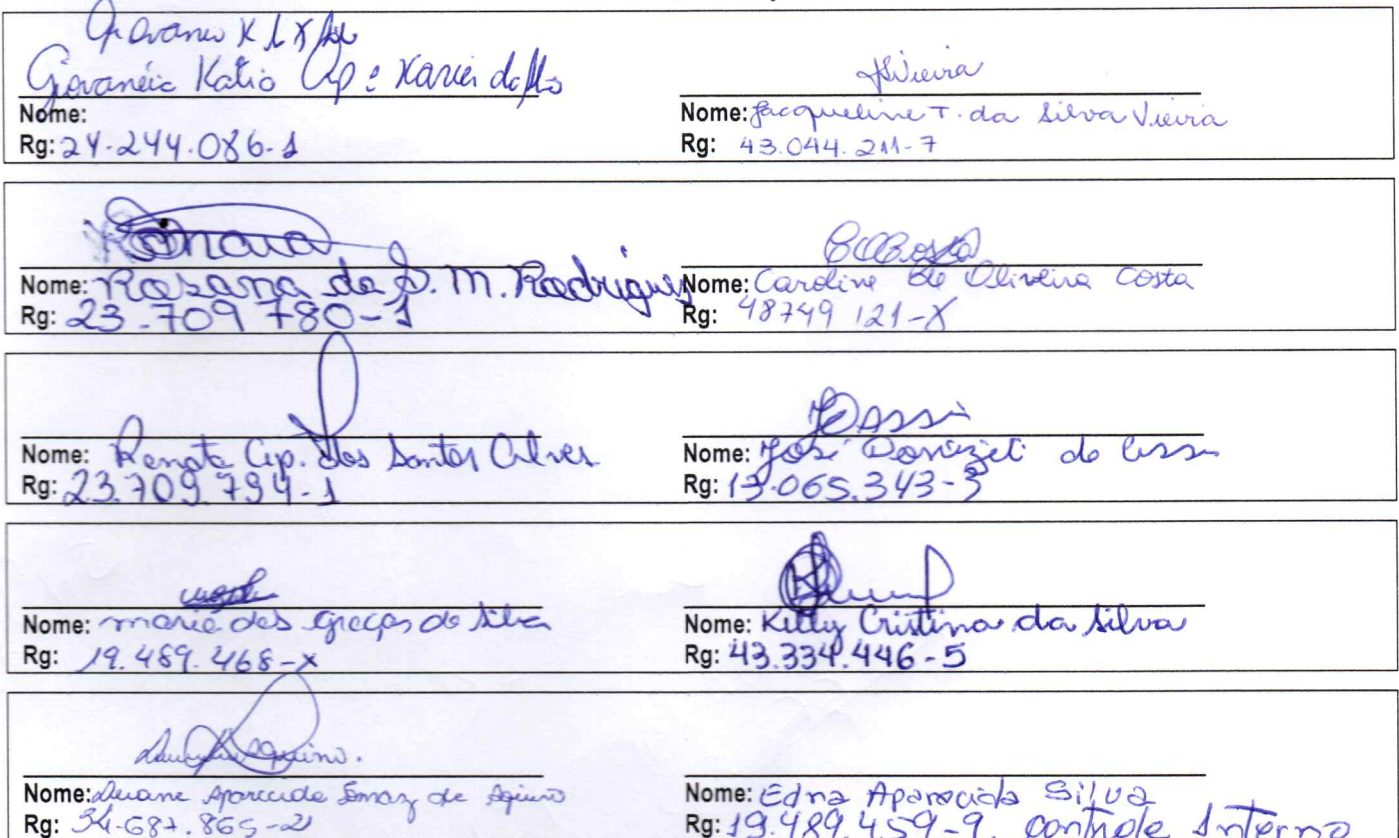 Giovaneia Katia Ap: Xavier da
Nome:
Rg: 24-244.086-1
JVieira
Nome: Jacqueline T. da Silva Vieira
Rg: 43.044.211-7
Nome: Rozana da S. M. Rodrigues
Rg: 23-709 780-1
Nome: Caroline de Oliveira Costa
Rg: 48749 121-X
Nome: Renata Ap. dos Santos Alves
Rg: 23.709.794-1
Nome: José Donizeti de
Rg: 13.065.343-3
Nome: Maria das Graças da Silva
Rg: 19.489.468-X
Nome: Kelly Cristina da Silva
Rg: 43.334.446-5
Nome: Aparecida de Aquino
Rg: 34-687.865-21
Nome: Edna Aparecida Silva
Rg: 19.489.459-9. controle Interno